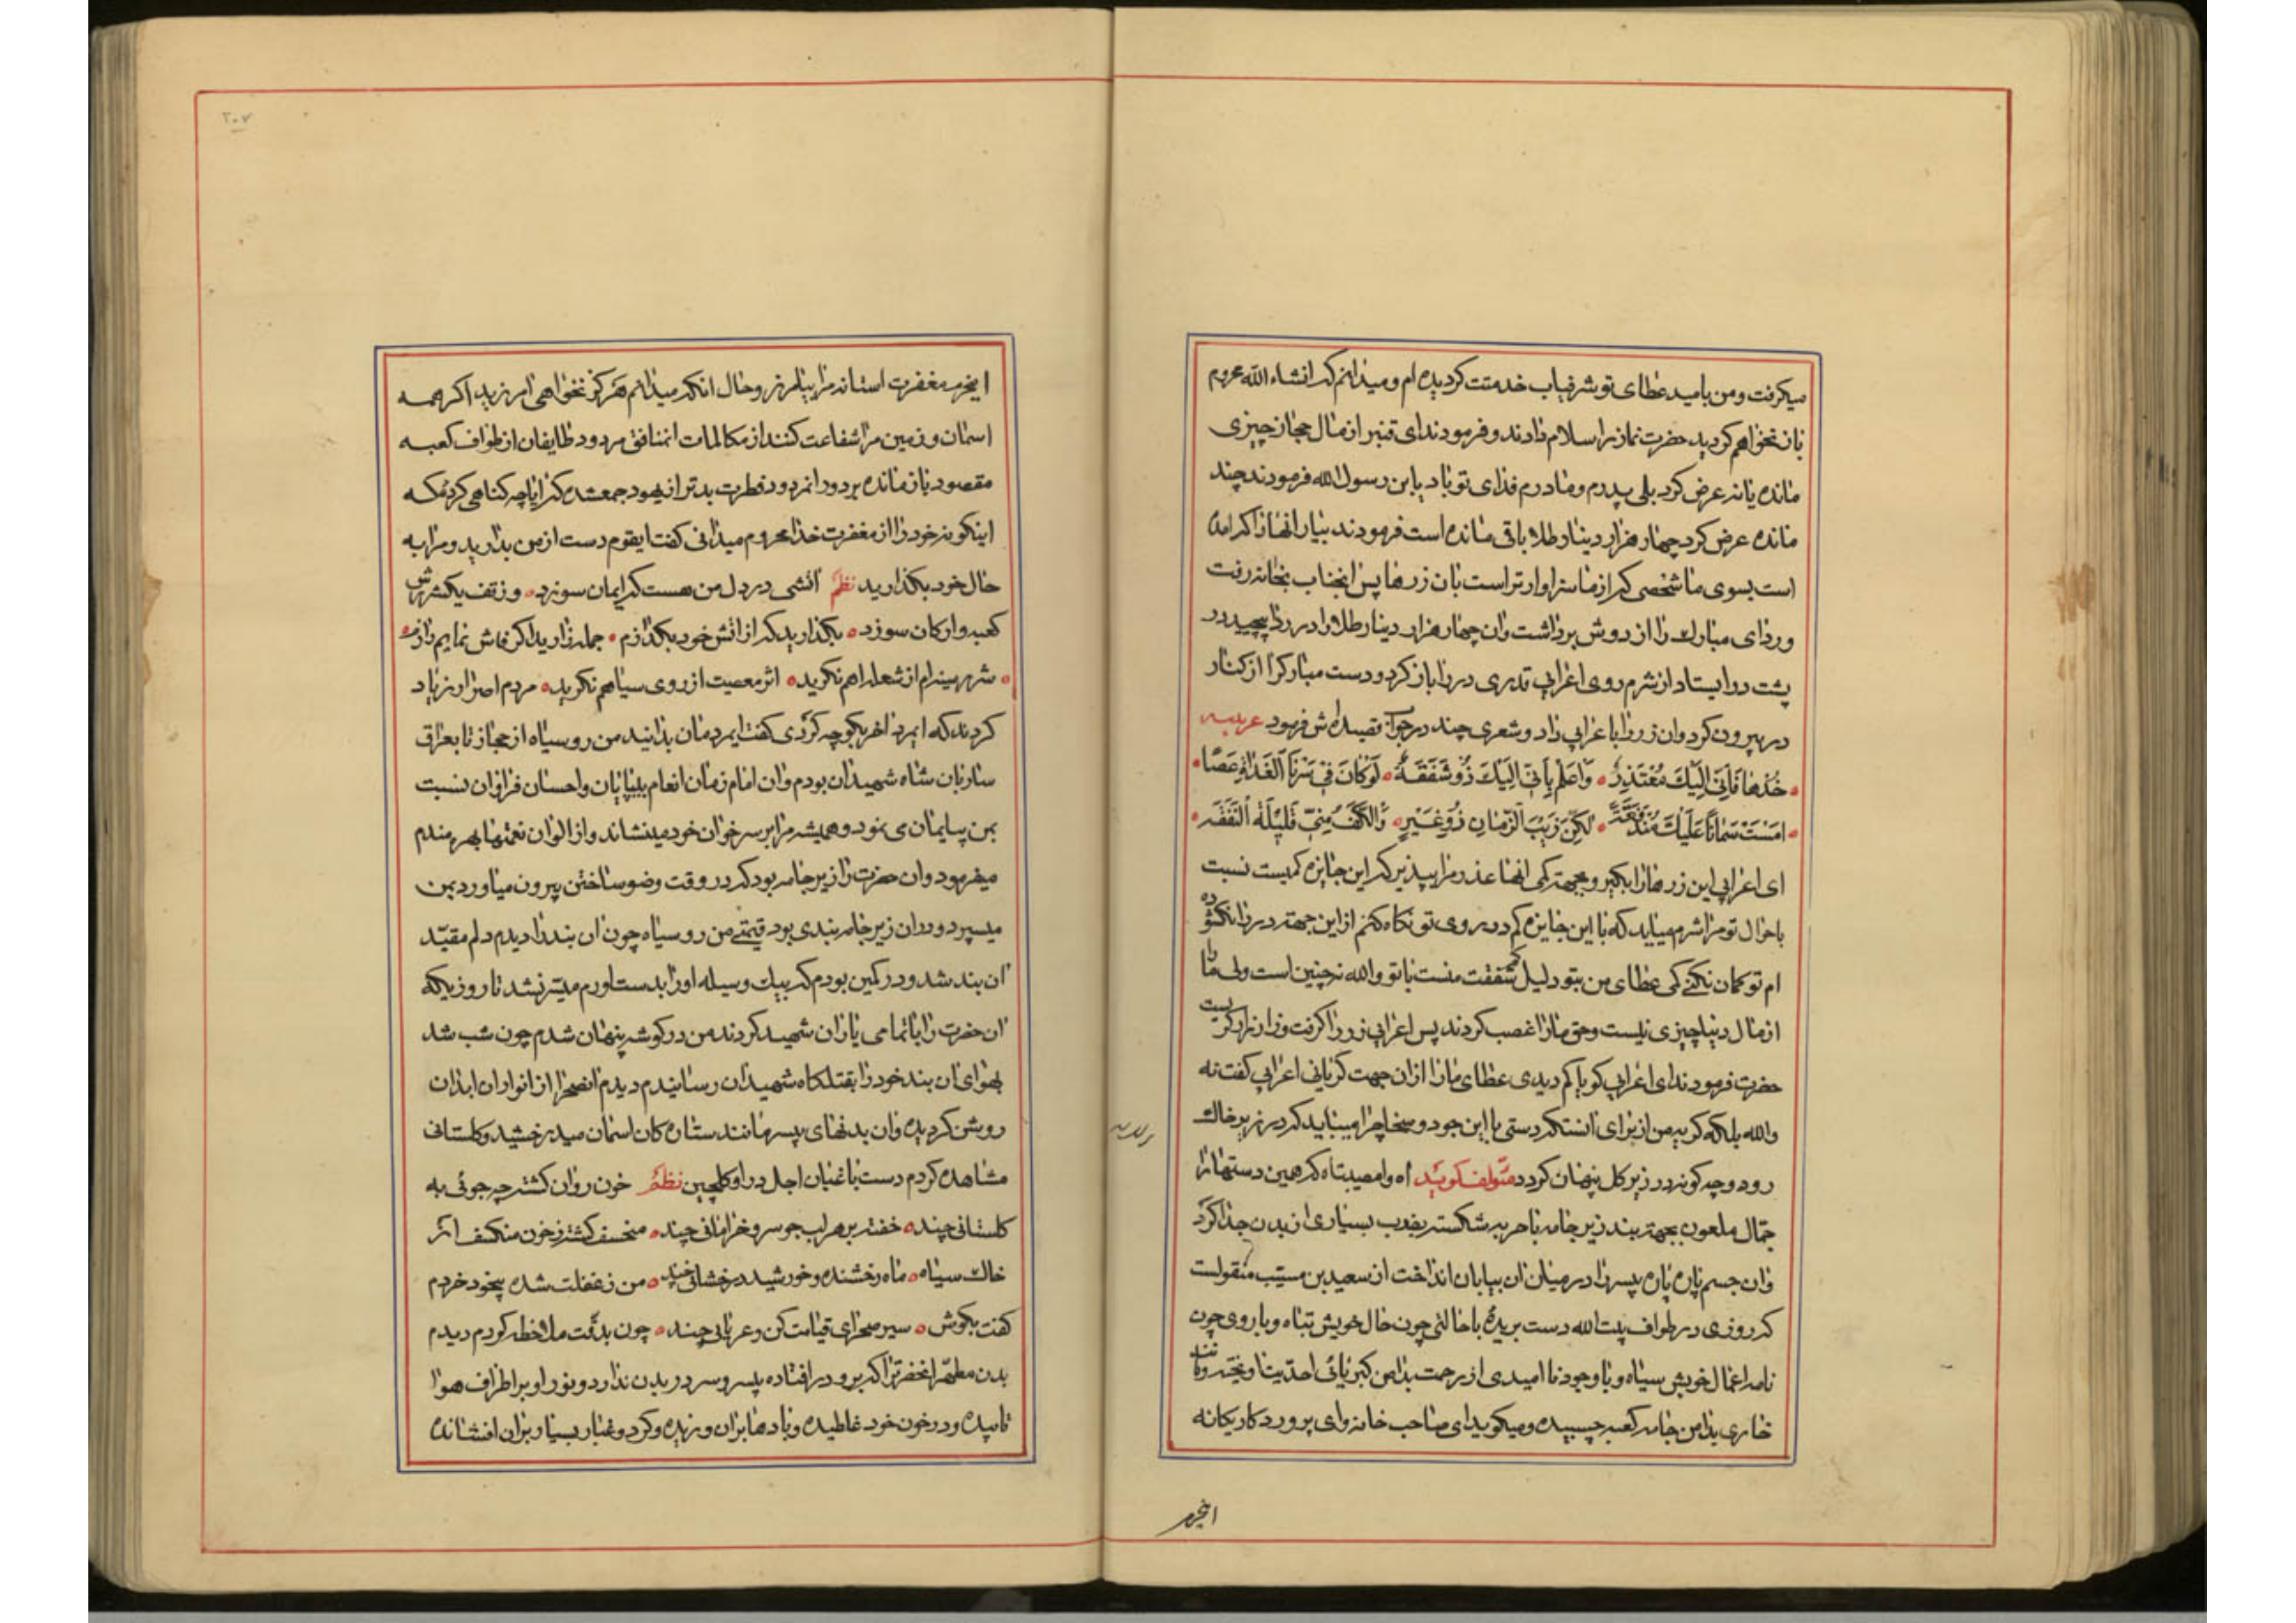 میکرفت ومن بامید عطای تو شرفیاب خدمتت کردیده ام و میدانم که انشاء الله محروم
نان نخواهم کردید حضرت نماز را سلام دادند و فرمودند ای قنبر از مال حجاز چیزی
مانده یا نه عرض کرد بلی پدرم و مادرم فدای تو باد یابن رسول الله فرمودند چند
مانده عرض کرد چهار هزار دینار طلا باقی مانده است فرمودند بیار انها را که امده
است بسوی ما شخصی که از ما سزاوارتر است بان زرها پس انجناب بخانه رفت
وردای مبارك را از دوش برداشت وان چهار هزار دینار طلا را در ردا پیچید در
پشت در ایستاد از شرم روی اعرابی قدری در را باز کرد و دست مبارکرا از کنار
در بیرون کرد وان زر را با عرابی داد و شعری چند در جواب قصیده اش فرمود عربیه
خُذها فَاِنّی اِلَیكَ مُعْتَذِرٌ وَاعلَم بِاَنّی اِلَیكَ ذُو شَفَقَةٍ لَوکَانَ فی سَیْرِنَا الْغَدَاةَ عَصًا
امْسَتْ سَمَانَا عَلَیْكَ مُنْدَفِقَةً لٰکِنَّ رَیْبَ الزَّمانِ ذُو غِیَرٍ وَالْکَفُّ مِنّی قَلیلَةُ النَّفَقَه
ای اعرابی این زرها را بکیر و بجهة کمی انها عذر مرا بپذیر که این جایزه کمیست نسبت
باحوال تو مرا شرم میاید که با این جایزه کم در روی تو نکاه کنم از این جهة در را نکشوده
ام تو کمان نکنی کمی عطای من بتو دلیل کم شفقت منست با تو والله نه چنین است ولی ما را
از مال دنیا چیزی نیست و حق ما را غصب کردند پس اعرابی زر را کرفت و زار زار کریست
حضرت فرمودند ای اعرابی کویا کم دیدی عطای ما را از ان جهت کریانی اعرابی کفت نه
والله بلکه کریه من از برای انست که دستی با این جود و سخا چرا میباید که در زیر خاك
رود و چه کونه در زیر کل پنهان کردد مؤلف کوید اه وامصیبتاه که همین دستها را
جمال ملعون بجهة بند زیر جامه با حربه شکسته بضرب بسیاری از بدن جدا کرد
وان جسم پاره پاره پسر را در میان ان بیابان انداخت از سعید بن مسیب منقولست
که روزی در طواف بیت الله دست بریده با حالتی چون حال خویش تباه و با روی چون
نامه اعمال خویش سیاه و با وجود نا امیدی از رحمت بدامن کبریائی احدیت اویخته و مانند
خاری بدامن جامه کعبه چسبیده و میکوید ای صاحب خانه وای پروردکار یکانه
اینجرم
۲۰۷
اینجرم مغفرت استانه مرا بیامرز و حال انکه میدانم هرکز نخواهی امرزید اکر همه
اسمان و زمین مرا شفاعت کنند از مکالمات انمنافق مردود طایفان از طواف کعبه
مقصود باز مانده بر دور انمردود فطرت بدتر از یهود جمع شده که ایا چه کناهی کرده که
اینکونه خود را از مغفرت خدا محروم میدانی کفت ایقوم دست از من بدارید و مرا به
حال خود بکذارید نظم اتشی در دل من هست که ایمان سوزد و ز تف یکشررش
کعبه و ارکان سوزد بکذارید که از اتش خود بکدازم جمله زارید اکر فاش نمایم رازم
شرر سینه ام از شعله اهم نکرید اثر معصیت از روی سیاهم نکرید مردم اصرار زیاد
کردند که ایمرد اخر بکو چه کردی کفت ایمردمان بدانید من روسیاه از حجاز تا بعراق
ساربان شاه شهیدان بودم وان امام زمان انعام بیپایان و احسان فراوان نسبت
بمن پیایمان می نمود و همیشه مرا بر سر خوان خود مینشاند و از الوان نعمتها بهره مندم
میفرمود وان حضرت را زیر جامه بود که در وقت وضو ساختن بیرون میاورد بمن
میسپرد و در ان زیر جامه بندی بود قیمتی من روسیاه چون ان بند را دیدم دلم مقید
ان بند شد و در کمین بودم که بیك وسیله او را بدست اورم میسر نشد تا روزیکه
ان حضرت را با تمامی یاران شهید کردند من در کوشه پنهان شدم چون شب شد
بهوای ان بند خود را بقتلکاه شهیدان رسانیدم دیدم انصحرا از انوار ان ابدان
روشن کردیده وان بدنهای بیسر مانند ستاره کان اسمان میدرخشید و کلستانی
مشاهده کردم دست باغبان اجل در او کلچین نظم خون روان کشته چه جوئی به
کلستانی چند خفته بر هر لب جو سرو خرامانی چند منخسف کشته ز خون منکسف از
خاك سیاه ماه رخشنده و خورشید درخشانی چند من ز غفلت شده بیخود خردم
کفت بکوش سیر صحرای قیامت کن و عریانی چند چون بدقت ملاحظه کردم دیدم
بدن مطهر انحضرترا که برو در افتاده بیسر و سر در بدن ندارد و نور او بر اطراف هوا
تابیده و در خون خود غلطیده و بادها بران وزیده و کرد و غبار بسیار بران افشانده